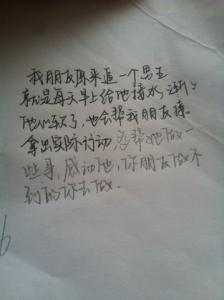 我朋友原来追一个男生
就是每天早上给他接水，
他心软了，也会帮我朋友接
拿出实际行动，多帮她做一
些事，感动她，你朋友做不
到的你去做.
6